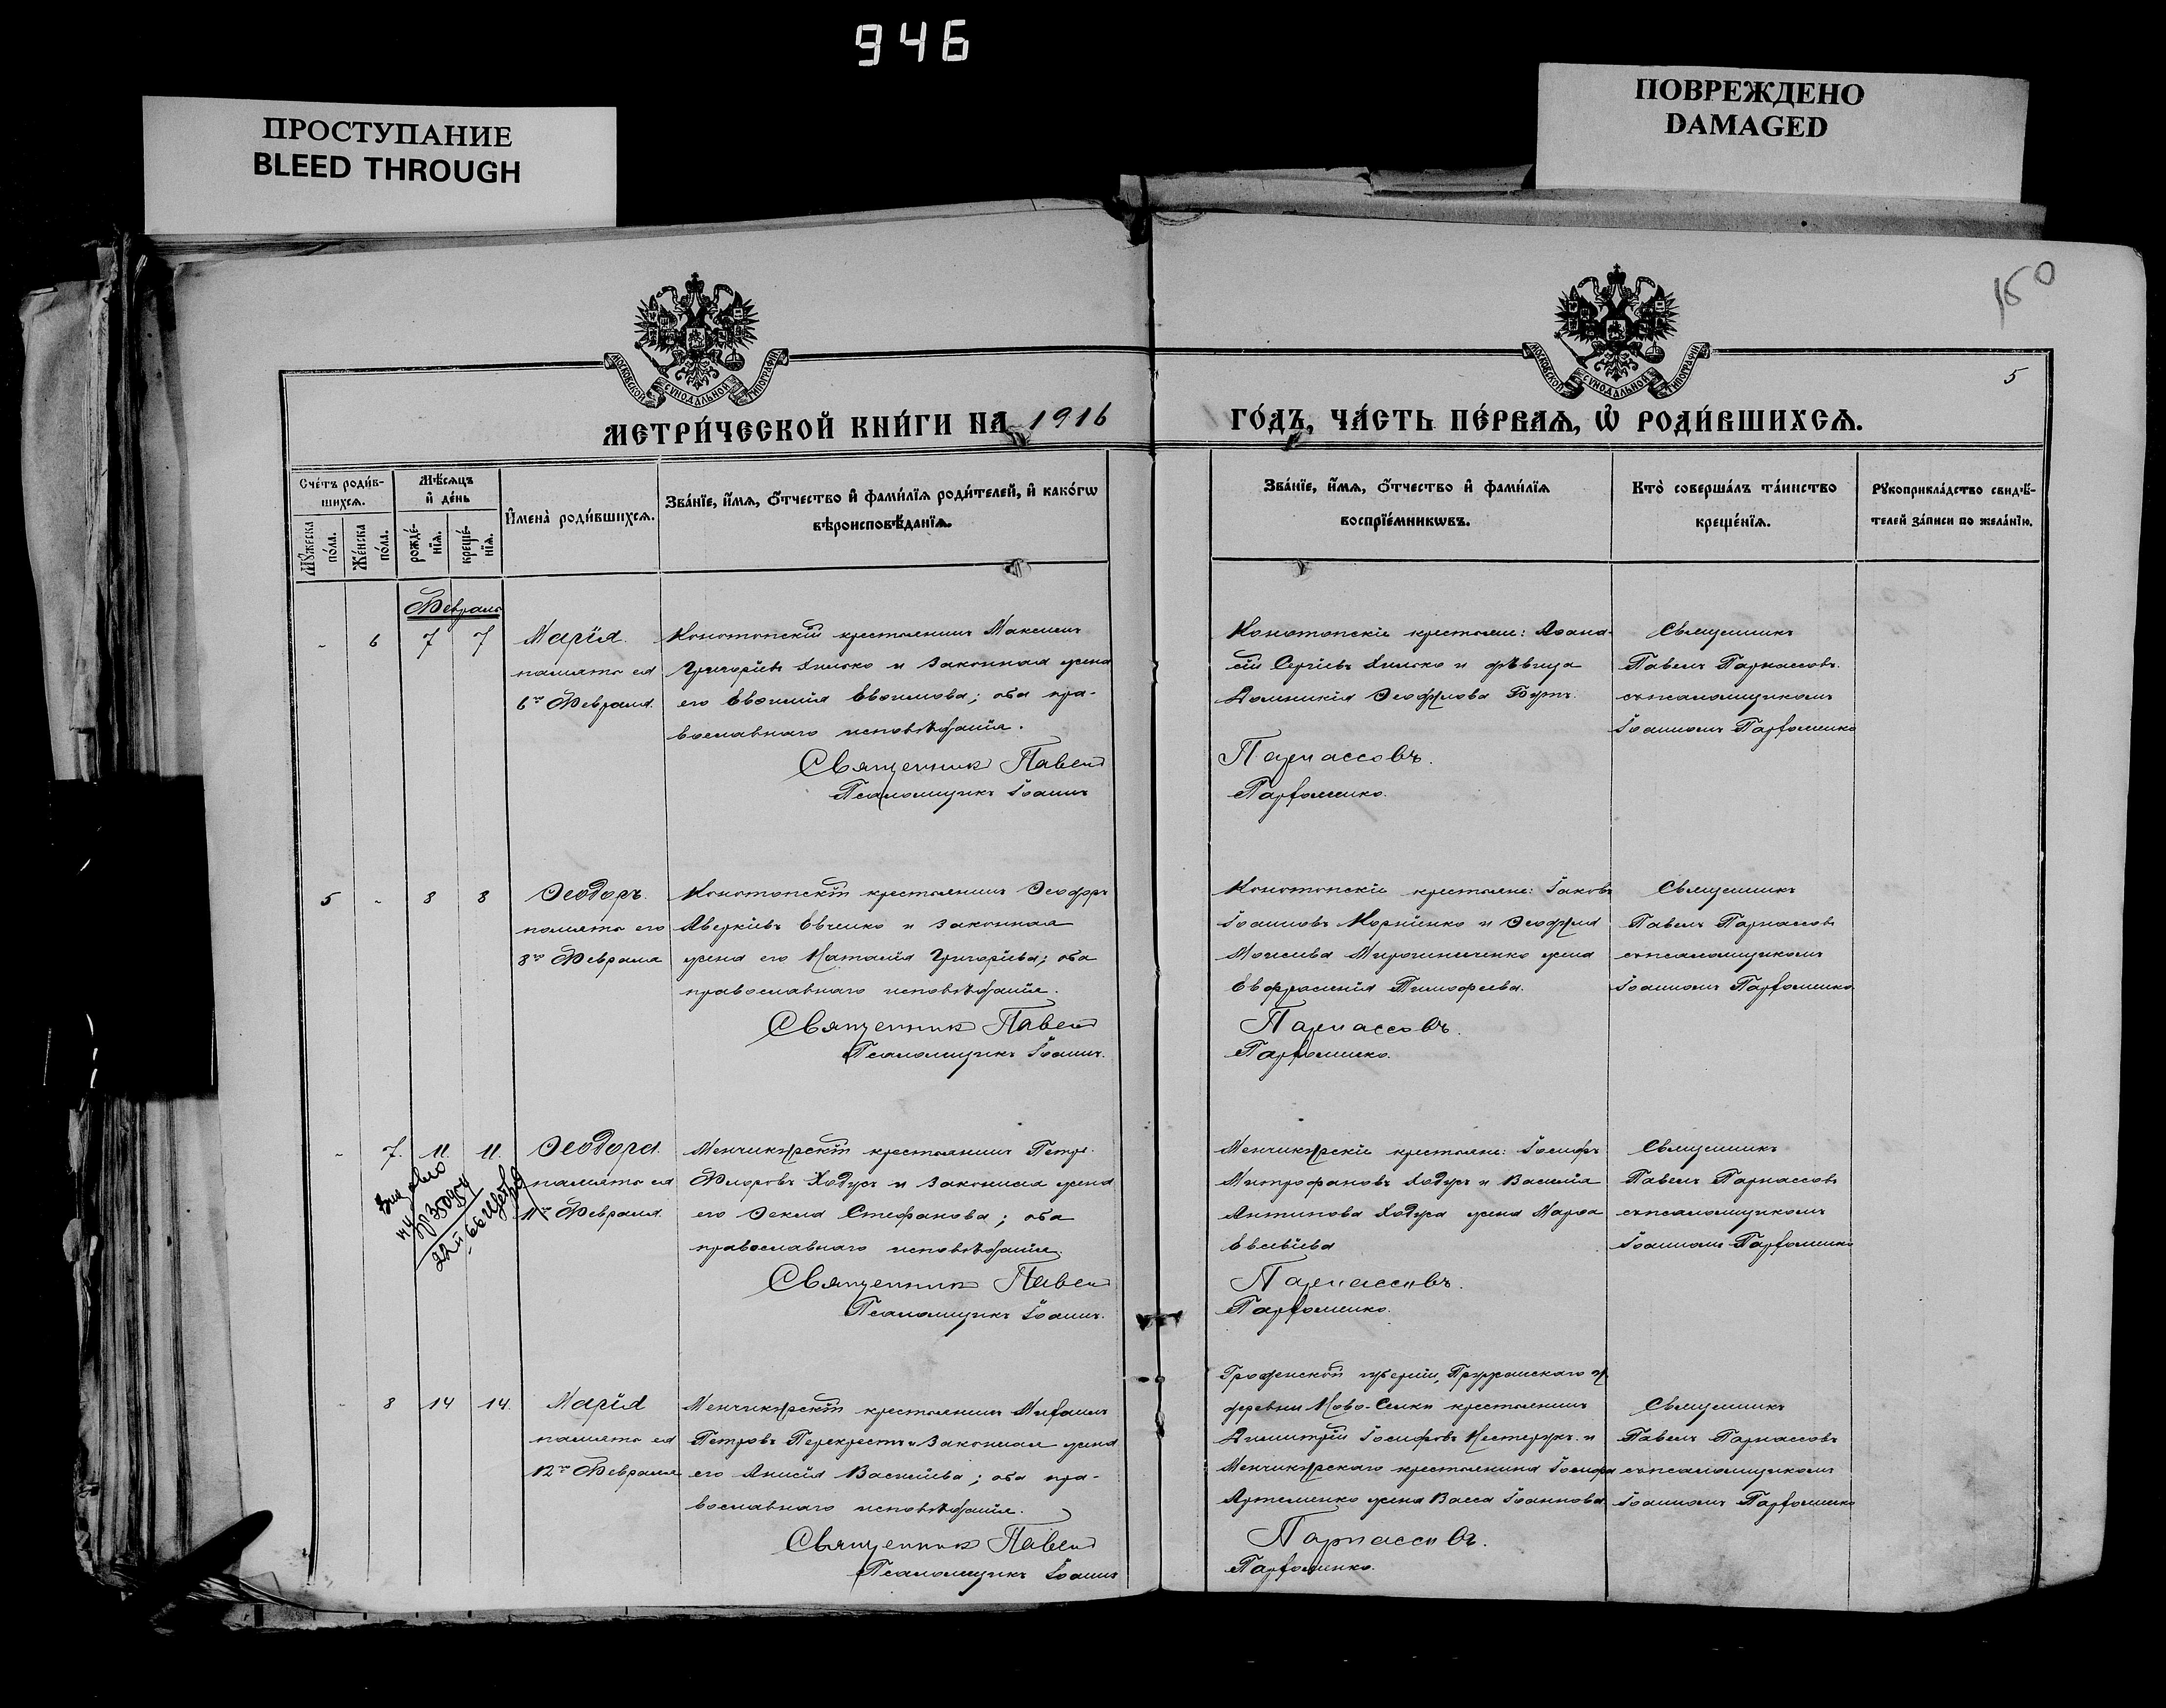 946
ПРОСТУПАНИЕ
BLEED THROUGH
ПОВРЕЖДЕНО
DAMAGED
150
5
МОСКОВСКОЙ СУНОДАЛЬНОЙ ТИПОГРАФІИ
МОСКОВСКОЙ СУНОДАЛЬНОЙ ТИПОГРАФІИ
МЕТРИ́ЧЕСКОЙ КНИ́ГИ НА 1916
ГО́ДЪ, ЧА́СТЬ ПЕ́РВАѦ, Ѽ РОДИ́ВШИХСѦ.
Сче́тъ роди́в-
шихсѧ.
Мѣ́сѧцъ
и҆ де́нь
Мꙋ́жеска
по́ла.
Же́нска
по́ла.
рожде́-
нїѧ.
креще́-
нїѧ.
И҆мена̀ роди́вшихсѧ.
Зва́нїе, и҆́мѧ, ѻ҆́тчество и҆ фами́лїѧ роди́телей, и҆ како́гѡ
вѣроисповѣ́данїѧ.
Зва́нїе, и҆́мѧ, ѻ҆́тчество и҆ фами́лїѧ
воспрїе́мникѡвъ.
Кто̀ соверша́лъ та́инство
креще́нїѧ.
Рꙋкоприкла́дство свидѣ́-
телей за́писи по жела́нїю.
Февраль
- 6 7 7 Марія.
памято ея
6го Февраля.
Конотопскій крестьянинъ Максимъ
Григоріевъ Хилько и законная жена
его Евѳимія Евѳимова; оба пра-
вославнаго исповѣданія.
Священникъ Павелъ
Псаломщикъ Іоаннъ
Конотопскіе крестьяне: Аѳана-
сій Сергіевъ Хилько и дѣвица
Домникія Ѳеодулова
Парнассовъ.
Парфоменко.
Священникъ
Павелъ Парнассовъ.
съ псаломщикомъ
Іоанномъ Парфоменко
5 - 8 8 Ѳеодоръ.
памято его
8го Февраля
Конотопскій крестьянинъ Ѳеодоръ
Аверкіевъ Евченко и законная
жена его Наталія Григоріева; оба
православнаго исповѣданія.
Священникъ Павелъ
Псаломщикъ Іоаннъ.
Конотопскіе крестьяне: Іаковъ
Іоанновъ Корніенко и
Моисеева Мирошниченко жена
Евфросинія Тимофеева.
Парнассовъ.
Парфоменко.
Священникъ
Павелъ Парнассовъ
съ псаломщикомъ
Іоанномъ Парфоменко
- 7. 11. 11. Ѳеодора.
памято ея
11го Февраля.
Менчикурскій крестьянинъ Петръ
Флоровъ Ходусъ и законная жена
его Ѳекла Стефанова; оба
православнаго исповѣданія.
Священникъ Павелъ
Псаломщикъ Іоаннъ.
Менчикурскіе крестьяне: Іосифъ
Митрофановъ Ходусъ и Василія
Антипова Ходуса жена Марѳа
Евсевіева
Парнассовъ.
Парфоменко.
Священникъ
Павелъ Парнассовъ
съ псаломщикомъ
Іоанномъ Парфоменко
- 8 14 14. Марія
памято ея
12го Февраля
Менчикурскій крестьянинъ Михаилъ
Петровъ Перекрестъ и законная жена
его Анисія Васильева; оба пра-
вославнаго исповѣданія.
Священникъ Павелъ
Псаломщикъ Іоаннъ
Гродненской губерніи, Пружанскаго у.
деревни Ново-Селки крестьянинъ
Димитрій Іосифовъ Нестерукъ и
Менчикурскаго крестьянина Іосифа
Артеменко жена Васса Іоаннова
Парнассовъ.
Парфоменко.
Священникъ
Павелъ Парнассовъ
съ псаломщикомъ
Іоанномъ Парфоменко